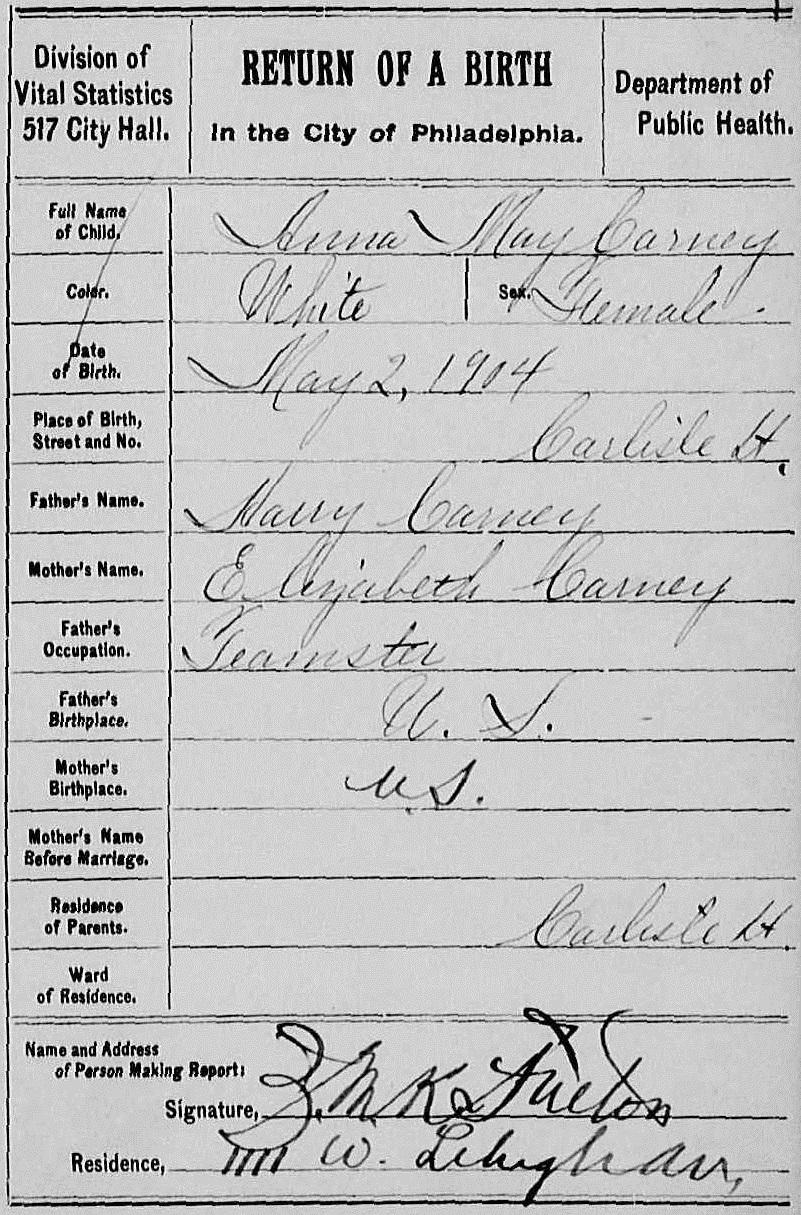 Division of Vital Statistics 517 City Hall.
RETURN OF A BIRTH
In the City of Philadelphia.
Department of Public Health.
Full Name of Child. Anna May Carney
Color. White Sex. Female
Date of Birth. May 2, 1904
Place of Birth, Street and No. Carlisle St.
Father's Name. Harry Carney
Mother's Name. Elizabeth Carney
Father's Occupation. Teamster
Father's Birthplace. U. S.
Mother's Birthplace. U.S.
Mother's Name Before Marriage.
Residence of Parents. Carlisle St.
Ward of Residence.
Name and Address
of Person Making Report:
Signature,
Residence, 1111 W. Lehigh Av,